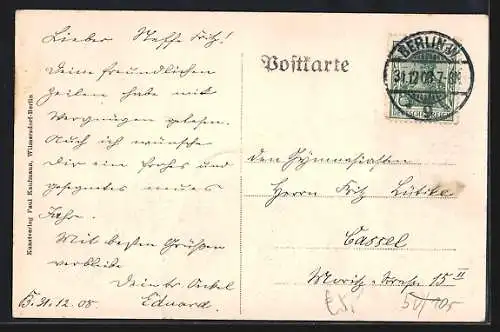 Lieber Neffe Fritz!
Deine freundlichen
Zeilen habe mit
Vergnügen gelesen.
Auch ich wünsche
Dir ein frohes und
gesegnetes neues
Jahr.
Mit besten Grüßen
verbleibe
Dein tr. Onkel
B. 31.12.08 Eduard.
Kunstverlag Paul Kaufmann, Wilmersdorf-Berlin
Postkarte
BERLIN
31.12.08.7-8N
den Gymnasiasten
Herrn Fritz Lütcke
Cassel
Moritz-Straße 15 II